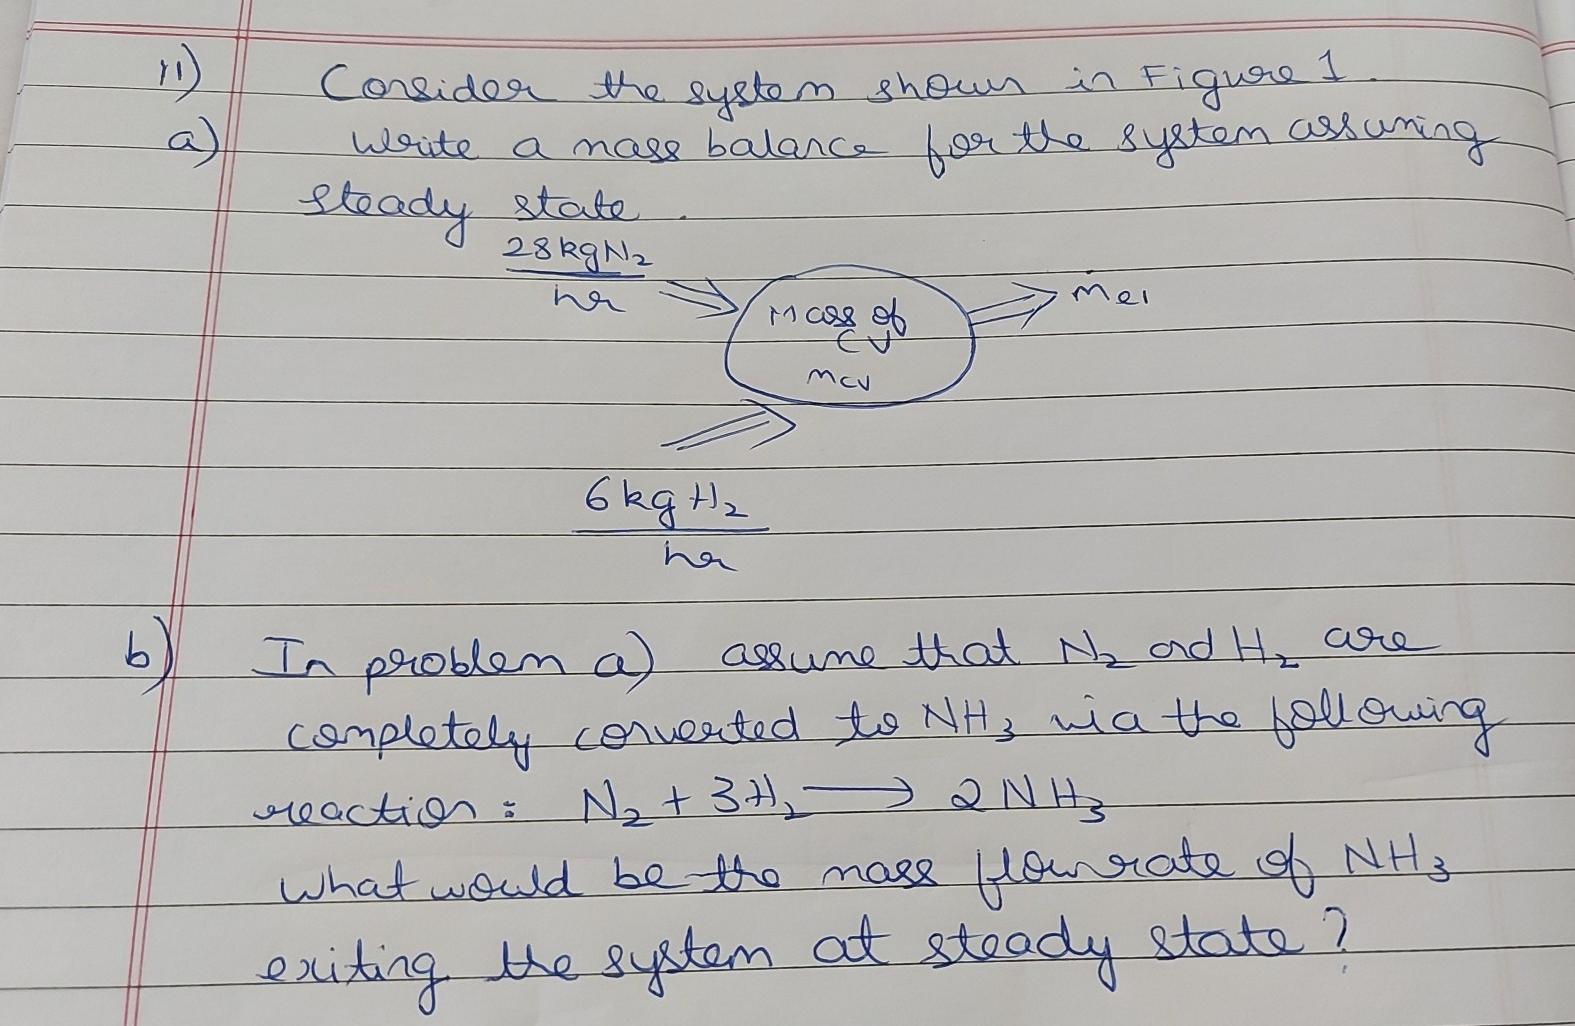 11) Consider the system shown in Figure 1.
a) Write a mass balance for the system assuming
steady state.
28 kg N₂
hr
Mass of
CV
mcv
ṁe1
6 kg H₂
hr
b) In problem a) assume that N₂ and H₂ are
completely converted to NH₃ via the following
reaction : N₂ + 3H₂ ⟶ 2NH₃
What would be the mass flow rate of NH₃
exiting the system at steady state?